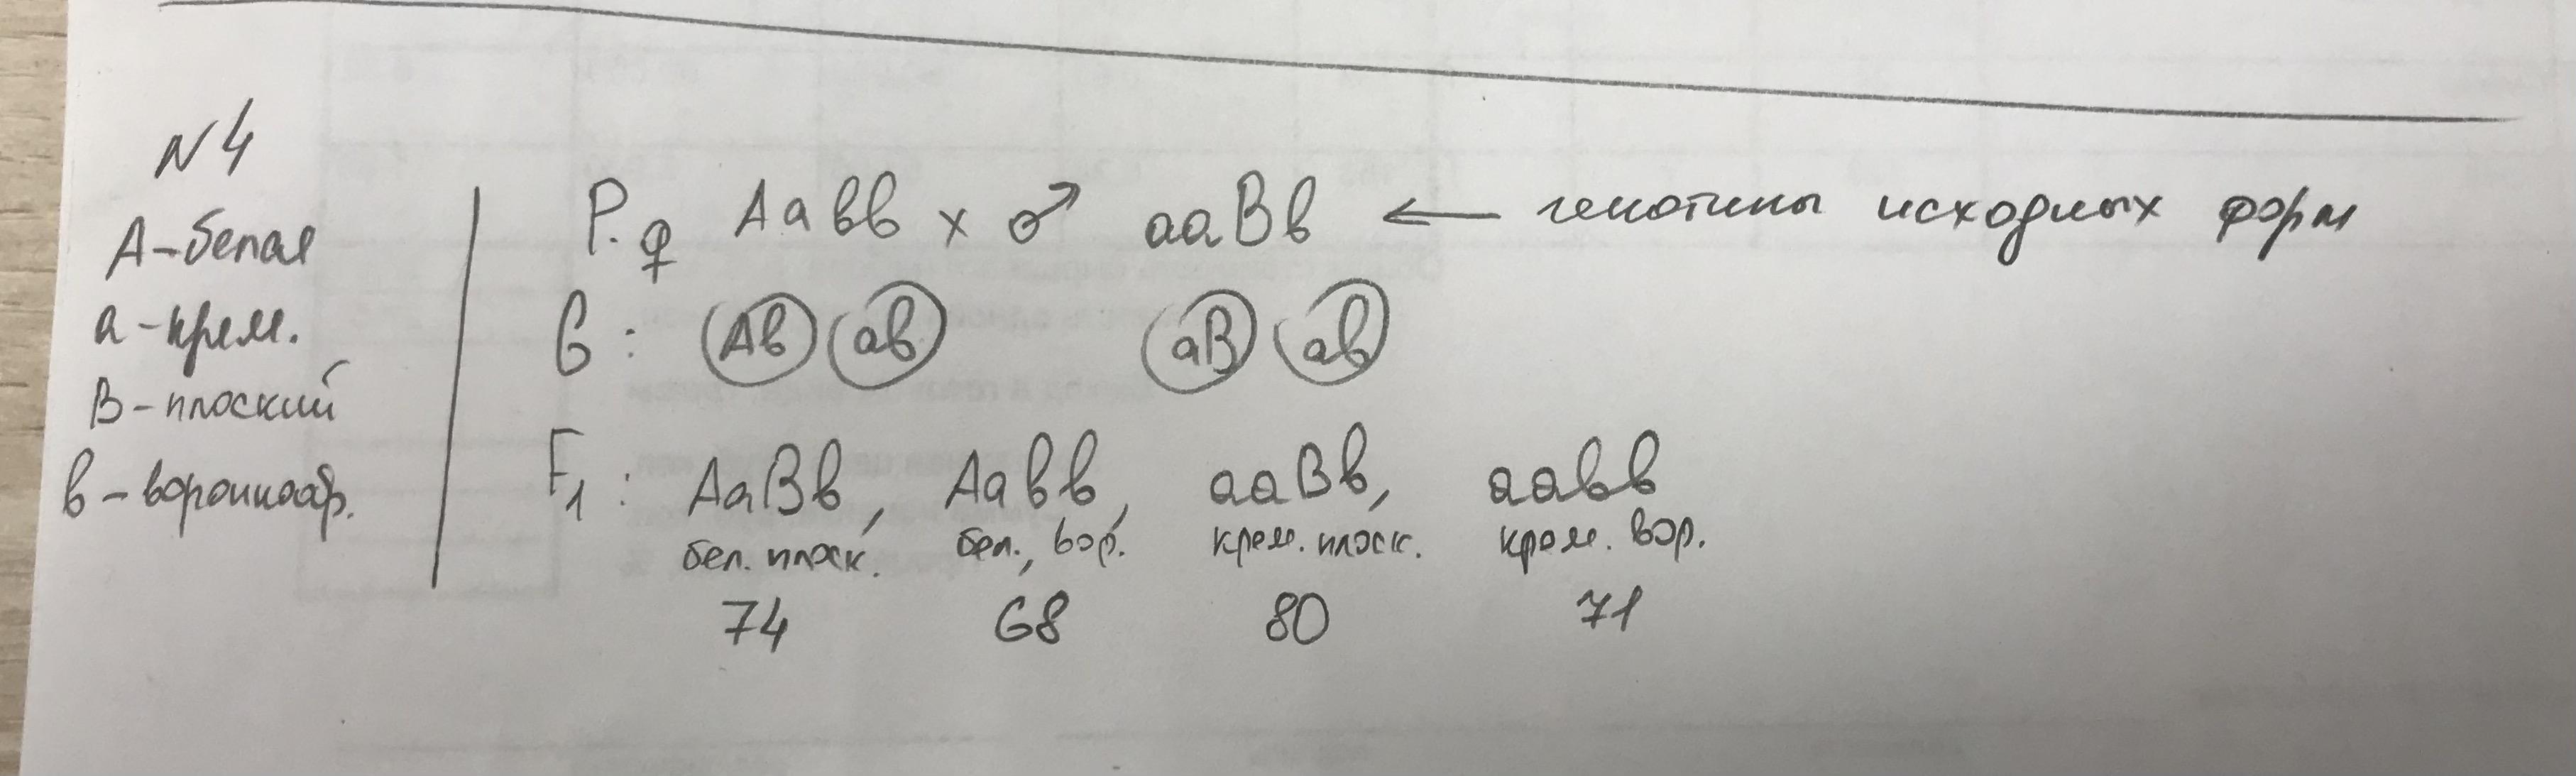 N4
А-белая
а-крем.
В-плоский
в-воронкообр.
P. ♀ Аавв x ♂ ааВв ← генотипы исходных форм
G: Ав ав аВ ав
F1: АаВв, Аавв, ааВв, аавв
бел. плоск. бел., вор. крем. плоск. крем. вор.
74 68 80 71